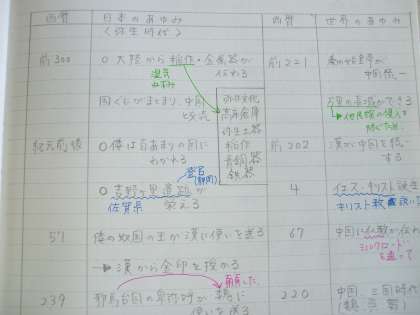 西暦 日本のあゆみ 西暦 世界のあゆみ
(弥生時代)
前300 ○大陸から稲作・金属器が 前221 秦の始皇帝が
伝わる 中国統一
国ぐにがまとまり、中国 万里の長城ができる
と交流 他民族の侵入を
防ぐため
弥生文化
高床倉庫
弥生土器
稲作
青銅器
鉄器
紀元前後 ○倭は百あまりの国に 前202 漢が中国を統一
わかれる する
登呂
(静岡)
○吉野ヶ里遺跡が 4 イエス・キリスト誕生
佐賀県 栄える キリスト教
57 倭の奴国の王が漢に使いを送る 67 中国に仏教が伝わ
シルクロード
を通って
→漢から金印を授かる
朝貢した
239 邪馬台国の卑弥呼が魏に 220 中国 三国時代
使いを送る (魏 呉 蜀)